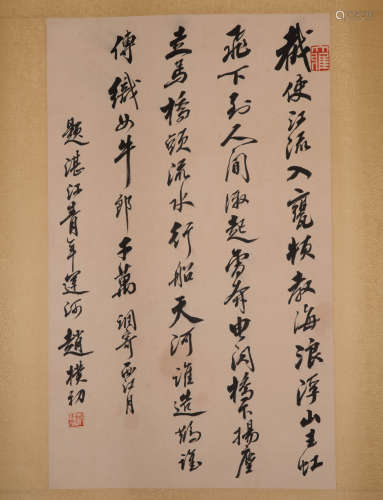 截使江流入甕頓教海浪浮山玉虹
飛下到人間激起雷奔电閃橋下揚塵
走馬橋頭流水行船天河誰造鵲誰
傳織女牛郎千萬 調寄西江月
題湛江青年運河 趙樸初